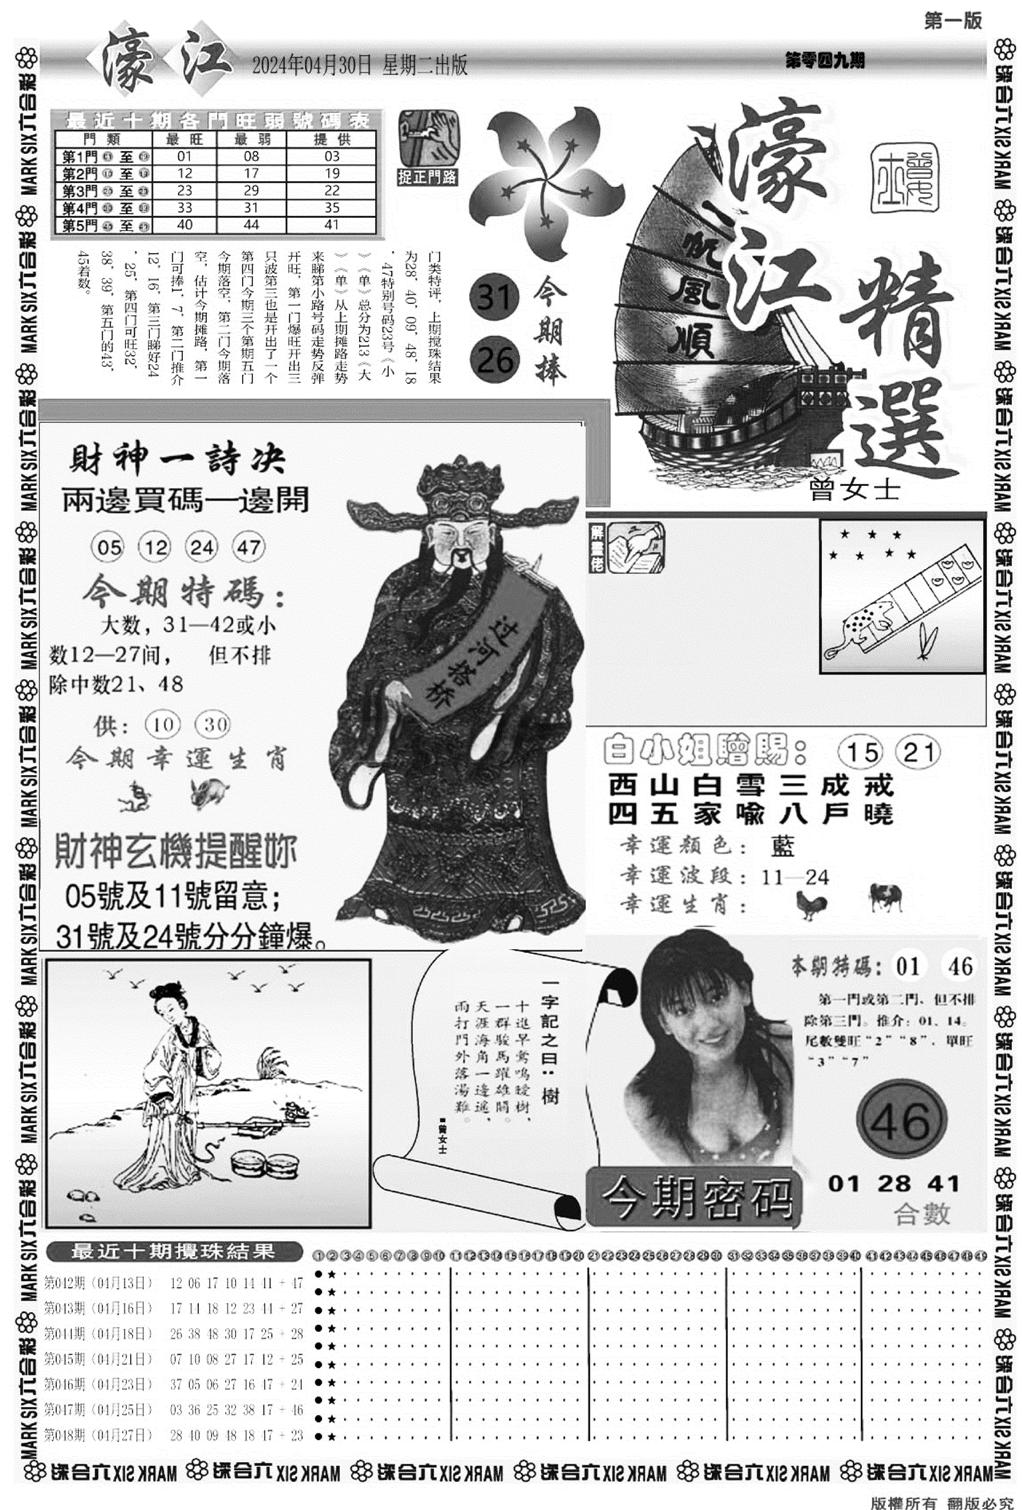 第一版
濠江
2024年04月30日 星期二出版
第零四九期
最近十期各門旺弱號碼表
門類 最旺 最弱 提供
第1門 至 01 08 03
第2門 至 12 17 19
第3門 至 23 29 22
第4門 至 33 31 35
第5門 至 40 44 41
捉正門路
门类特评，上期搅珠结果
为28、40、09、48、18
、47特别号码23号（小
）（单）总分为213（大
）（单）从上期摊路走势
来睇第小路号码走势反弹
开旺，第一门爆旺开出三
只波第三也是开出了一个
第四门今期三个第期五门
今期落空，第二门今期落
空，估计今期摊路，第一
门可捧1、7，第二门推介
12、16，第三门睇好24
、25，第四门可旺32、
38、39，第五门的43、
45着数。
31
26
今期捧
一帆風順
濠江
精選
曾女士
財神一詩决
兩邊買碼一邊開
05 12 24 47
今期特碼：
大数，31—42或小
数12—27间， 但不排
除中数21、48
供： 10 30
今期幸運生肖
財神玄機提醒妳
05號及11號留意；
31號及24號分分鐘爆。
过河搭桥
解畫佬
白小姐贈賜： 15 21
西山白雪三成戒
四五家喻八戶曉
幸運顏色： 藍
幸運波段：11—24
幸運生肖：
一字記之曰：樹
十進早鶯鳴暧樹，
一群駿馬躍雄關。
天涯海角一邊遙，
雨打門外落湯雞。
■曾女士
本期特碼：01 46
第一門或第二門、但不排
除第三門。推介：01、14。
尾數雙旺“2”“8”．單旺
“3”“7”
46
今期密码
01 28 41
合數
最近十期攪珠結果
1 2 3 4 5 6 7 8 9 10 11 12 13 14 15 16 17 18 19 20 21 22 23 24 25 26 27 28 29 30 31 32 33 34 35 36 37 38 39 40 41 42 43 44 45 46 47 48 49
第042期（04月13日） 12 06 17 10 14 41 + 47
第043期（04月16日） 17 14 18 12 23 44 + 27
第044期（04月18日） 26 38 48 30 17 25 + 28
第045期（04月21日） 07 10 08 27 17 12 + 25
第046期（04月23日） 37 05 06 27 16 47 + 24
第047期（04月25日） 03 36 25 32 38 17 + 46
第048期（04月27日） 28 40 09 48 18 47 + 23
MARK SIX六合彩
版權所有 翻版必究